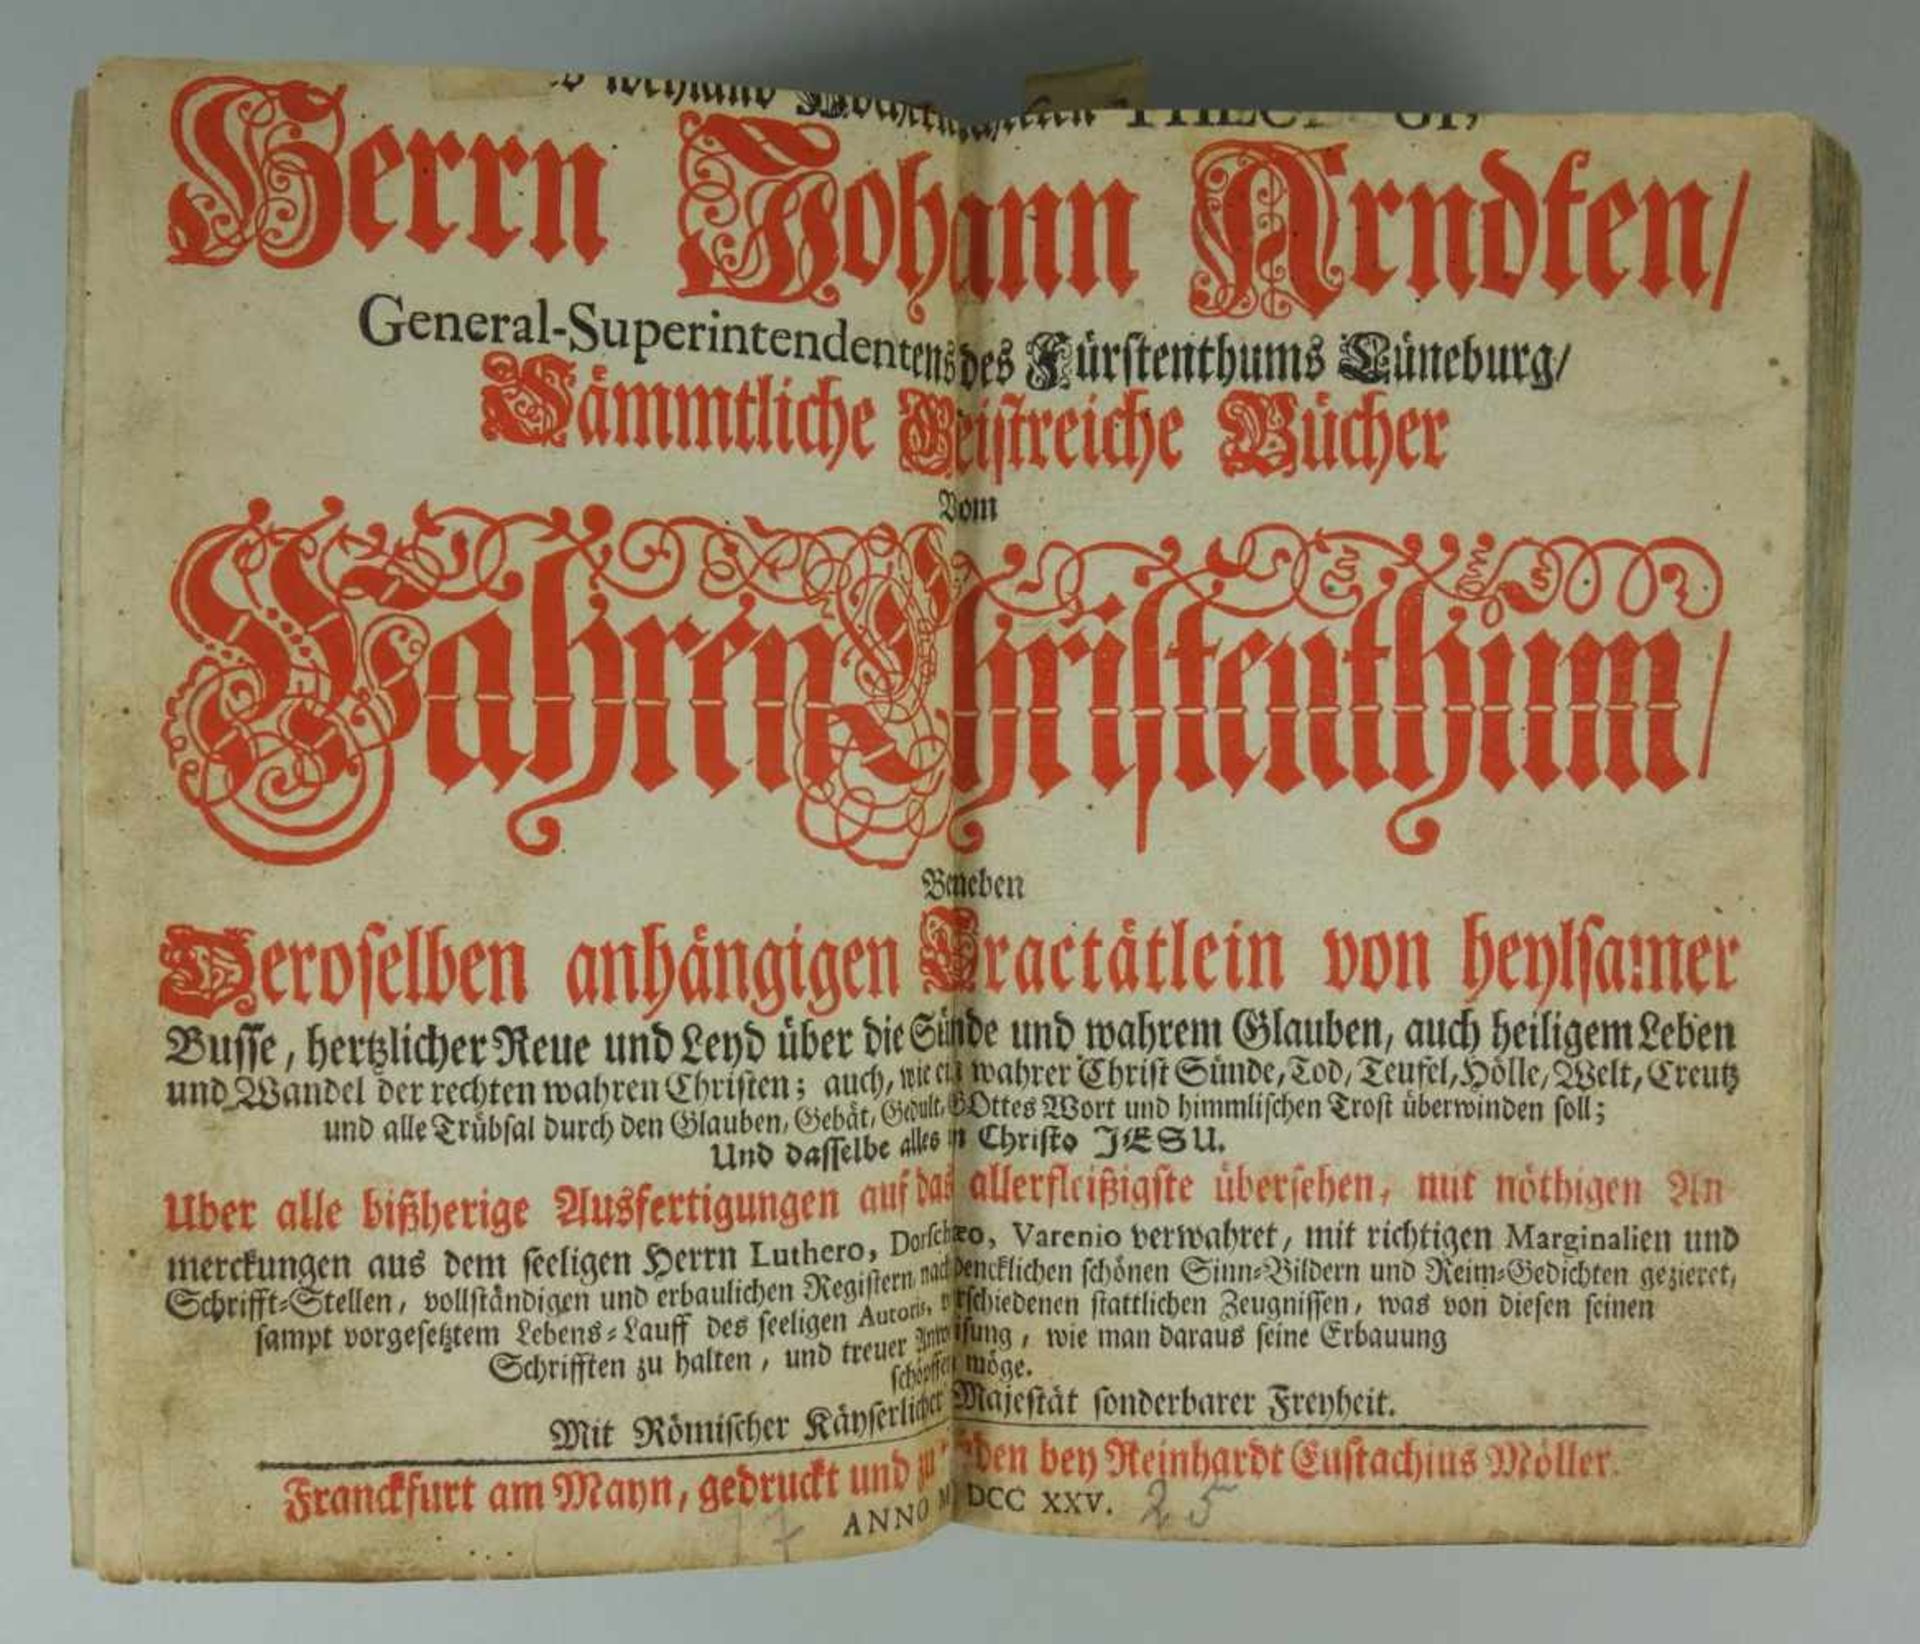 weyland
Herrn Johann Arndten/
General-Superintendentens des Fürstenthums Lüneburg/
Sämmtliche Geistreiche Bücher
Vom
Wahren Christenthum/
Beneben
Deroselben anhängigen Tractätlein von heylsamer
Busse, hertzlicher Reue und Leyd über die Sünde und wahrem Glauben, auch heiligem Leben
und Wandel der rechten wahren Christen; auch, wie ein wahrer Christ Sünde, Tod, Teufel, Hölle, Welt, Creutz
und alle Trübsal durch den Glauben, Gebät, Gedult, GOttes Wort und himmlischen Trost überwinden soll;
Und dasselbe alles in Christo JESU.
Uber alle bißherige Ausfertigungen auf das allerfleißigste übersehen, mit nöthigen An
merckungen aus dem seeligen Herrn Luthero, Dorschæo, Varenio verwahret, mit richtigen Marginalien und
Schrifft-Stellen, vollständigen und erbaulichen Registern, nachdencklichen schönen Sinn-Bildern und Reim-Gedichten gezieret,
sampt vorgesetztem Lebens-Lauff des seeligen Autoris, verschiedenen stattlichen Zeugnissen, was von diesen seinen
Schrifften zu halten, und treuer Anweisung, wie man daraus seine Erbauung
schöpffen möge.
Mit Römischer Käyserlicher Majestät sonderbarer Freyheit.
Franckfurt am Mayn, gedruckt und zu finden bey Reinhardt Eustachius Möller.
ANNO MDCC XXV.
17 25